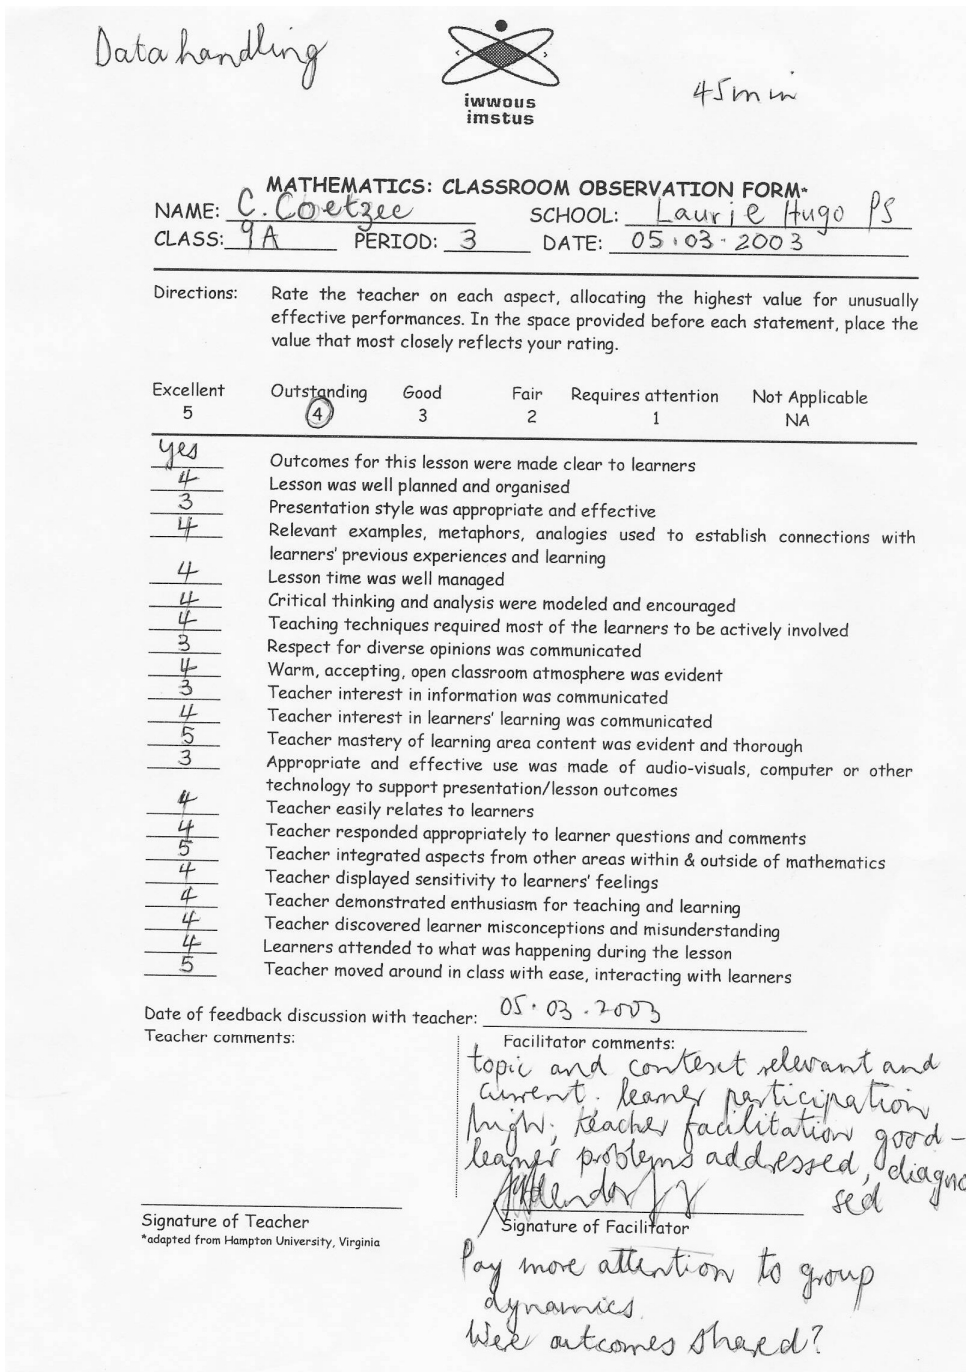 Data handling
45 min
iwwous
imstus
MATHEMATICS: CLASSROOM OBSERVATION FORM*
NAME: C. Coetzee SCHOOL: Laurie Hugo PS
CLASS: 9A PERIOD: 3 DATE: 05.03.2003
Directions: Rate the teacher on each aspect, allocating the highest value for unusually
effective performances. In the space provided before each statement, place the
value that most closely reflects your rating.
Excellent Outstanding Good Fair Requires attention Not Applicable
5 4 3 2 1 NA
yes Outcomes for this lesson were made clear to learners
4 Lesson was well planned and organised
3 Presentation style was appropriate and effective
4 Relevant examples, metaphors, analogies used to establish connections with
learners' previous experiences and learning
4 Lesson time was well managed
4 Critical thinking and analysis were modeled and encouraged
4 Teaching techniques required most of the learners to be actively involved
3 Respect for diverse opinions was communicated
4 Warm, accepting, open classroom atmosphere was evident
3 Teacher interest in information was communicated
4 Teacher interest in learners' learning was communicated
5 Teacher mastery of learning area content was evident and thorough
3 Appropriate and effective use was made of audio-visuals, computer or other
technology to support presentation/lesson outcomes
4 Teacher easily relates to learners
4 Teacher responded appropriately to learner questions and comments
5 Teacher integrated aspects from other areas within & outside of mathematics
4 Teacher displayed sensitivity to learners' feelings
4 Teacher demonstrated enthusiasm for teaching and learning
4 Teacher discovered learner misconceptions and misunderstanding
4 Learners attended to what was happening during the lesson
5 Teacher moved around in class with ease, interacting with learners
Date of feedback discussion with teacher: 05.03.2003
Teacher comments:
Facilitator comments:
topic and context relevant and
current. learner participation
high; teacher facilitation good -
learner problems addressed, diagno
sed
Signature of Teacher
*adapted from Hampton University, Virginia
Signature of Facilitator
Pay more attention to group
dynamics.
Were outcomes shared?